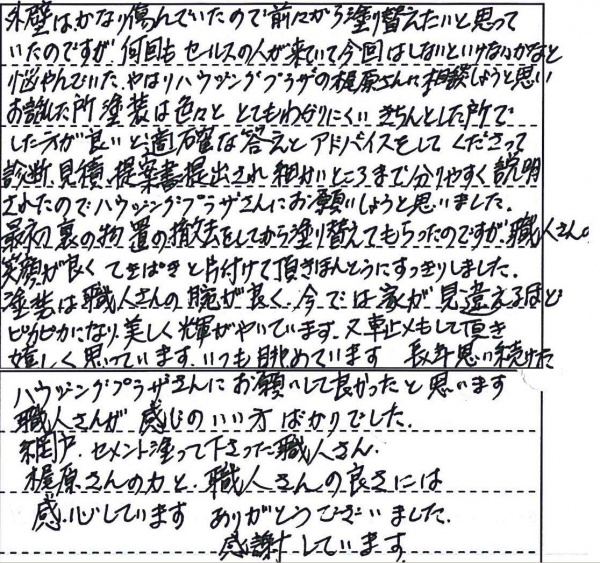 外壁は、かなり傷んでいたので前々から塗り替えたいと思って
いたのですが、何回もセールスの人が来ていて今回はしないといけないかなと
悩やんでいた。やはりハウジングプラザの梶原さんに相談しようと思い
お話した所、塗装は色々ととてもわかりにくい、きちんとした所で
した方が良いと適確な答えとアドバイスをしてくださって
診断、見積、提案書提出され、細かいところまで分りやすく説明
されたのでハウジングプラザさんにお願いしようと思いました。
最初、裏の物置の撤去をしてから塗り替えてもらったのですが、職人さんの
笑顔が良くてきぱきと片付けて頂きほんとうにすっきりしました。
塗装は職人さんの腕が良く、今では家が見違えるほど
ピカピカになり、美しく輝がやいています。又車止メもして頂き
嬉しく思っています。いつも眺めています 長年思い続けた
ハウジングプラザさんにお願いして良かったと思います
職人さんが感じのいい方ばかりでした。
網戸、セメント塗って下さった職人さん、
梶原さんの力と、職人さんの良さには
感心しています ありがとうございました。
感謝しています。